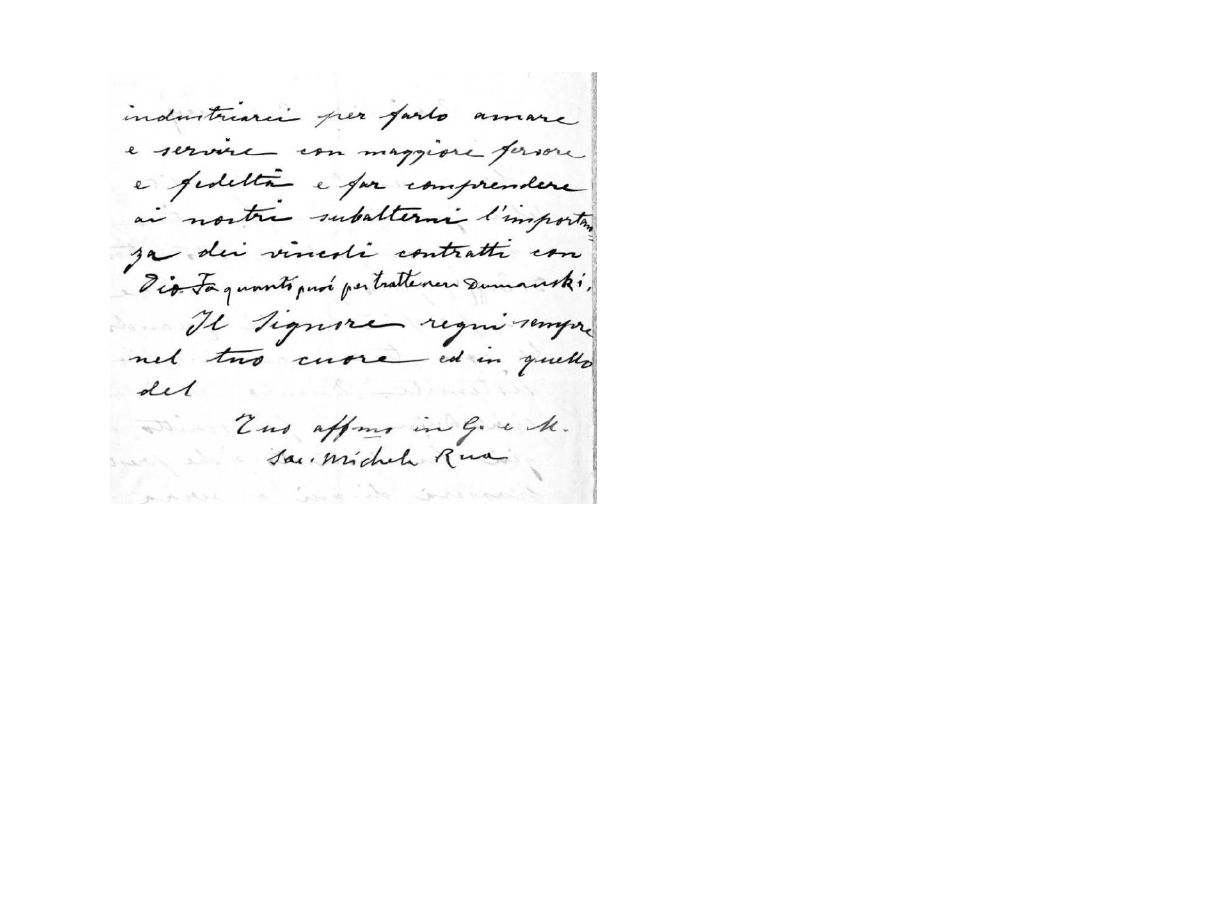 industriarci per farlo amare
e servire con maggiore fervore
e fedeltà e far comprendere
ai nostri subalterni l'importan=
za dei vincoli contratti con
Dio. Fa quanto puoi per trattenere Dumanski.
Il Signore regni sempre
nel tuo cuore ed in quello
del
Tuo affmo in G. e M.
Sac. Michele Rua